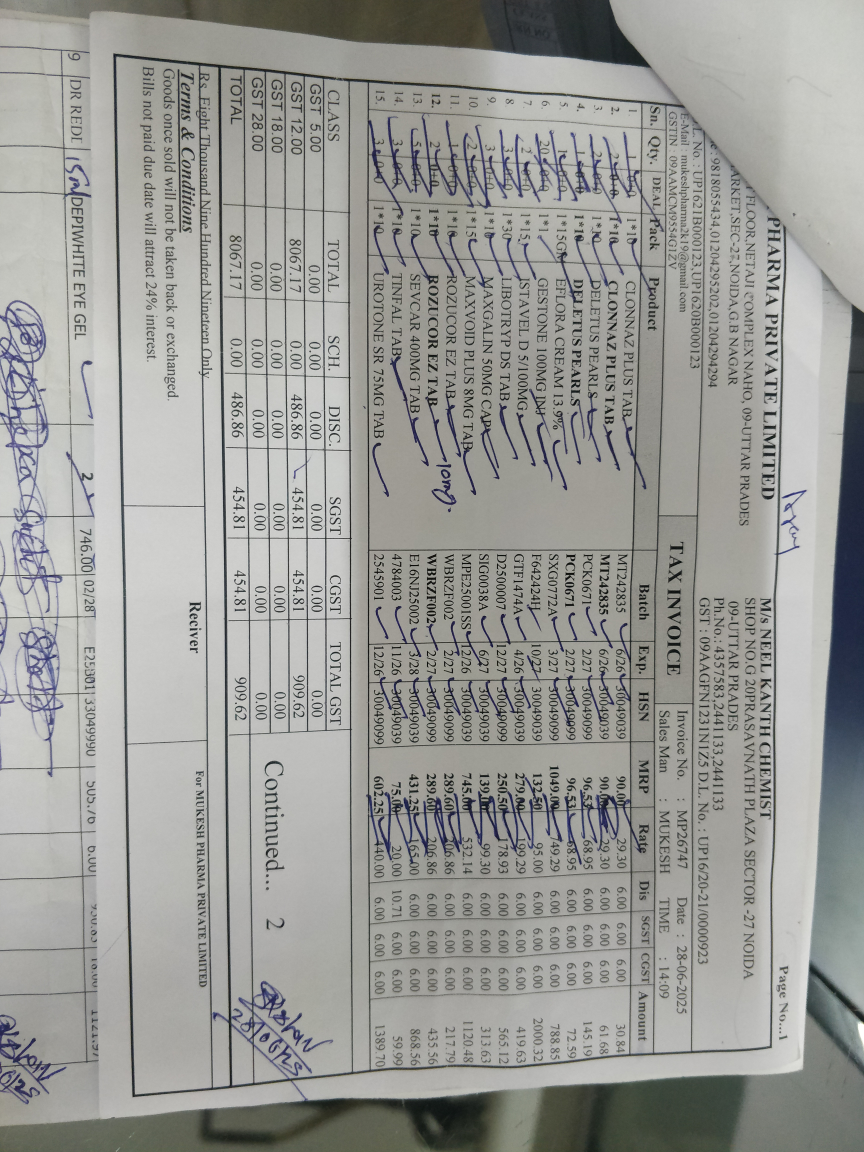 Page No...1
PHARMA PRIVATE LIMITED
FLOOR,NETAJI COMPLEX NAHO, 09-UTTAR PRADES
MARKET,SEC-27,NOIDA,G.B NAGAR
9818055434,01204295202,01204294294
L. No. : UP1621B000123,UP1620B000123
E-Mail : mukeshpharma2k19@gmail.com
GSTIN : 09AAMCM9554G1ZV
M/s NEEL KANTH CHEMIST
SHOP NO.G 20PRASAVNATH PLAZA SECTOR -27 NOIDA
09-UTTAR PRADES
Ph.No.: 4357583,2441133,2441133
GST : 09AAGFN1231N1Z5 D.L. No. : UP16/20-21/0000923
TAX INVOICE
Invoice No. : MP26747 Date : 28-06-2025
Sales Man : MUKESH TIME : 14:09
Sn. Qty. DEAL Pack Pproduct Batch Exp. HSN MRP Rate Dis SGST CGST Amount
1. 1*10 CLONNAZ PLUS TAB MT242835 6/26 30049039 90.00 29.30 6.00 6.00 6.00 30.84
2. 1*10 CLONNAZ PLUS TAB MT242835 6/26 30049039 90.00 29.30 6.00 6.00 6.00 61.68
3. 1*10 DELETUS PEARLS PCK0671 2/27 30049099 96.53 68.95 6.00 6.00 6.00 145.19
4. 1*10 DELETUS PEARLS PCK0671 2/27 30049099 96.53 68.95 6.00 6.00 6.00 72.59
5. 1*15GM EFLORA CREAM 13.9% SXG0772A 3/27 30049099 1049.00 749.29 6.00 6.00 6.00 788.85
6. 1*1 GESTONE 100MG INJ F642424H 10/27 30049039 132.50 95.00 6.00 6.00 6.00 2000.32
7. 1*15 ISTAVEL D 5/100MG GTF1474A 4/26 30049039 279.00 199.29 6.00 6.00 6.00 419.63
8 1*30 LIBOTRYP DS TAB D2500007 12/27 30049099 250.50 178.93 6.00 6.00 6.00 565.12
9. 1*10 MAXGALIN 50MG CAP SIG0038A 6/27 30049039 139.00 99.30 6.00 6.00 6.00 313.63
10. 1*15 MAXVOID PLUS 8MG TAB MPE25001SS 12/26 30049039 745.00 532.14 6.00 6.00 6.00 1120.48
11. 1*10 ROZUCOR EZ TAB WBRZF002 2/27 30049099 289.60 206.86 6.00 6.00 6.00 217.79
12. 1*10 ROZUCOR EZ TAB 10mg. WBRZF002 2/27 30049099 289.60 206.86 6.00 6.00 6.00 435.56
13. 1*10 SEVCAR 400MG TAB E16NJ25002 3/28 30049099 431.25 165.00 6.00 6.00 6.00 868.56
14. 1*10 TINFAL TAB 4784003 11/26 30049039 75.00 20.00 10.71 6.00 6.00 59.99
15. 1*10 UROTONE SR 75MG TAB 2545901 12/26 30049099 602.25 440.00 6.00 6.00 6.00 1389.70
CLASS TOTAL SCH. DISC. SGST CGST TOTAL GST
GST 5.00 0.00 0.00 0.00 0.00 0.00 0.00
GST 12.00 8067.17 0.00 486.86 454.81 454.81 909.62
GST 18.00 0.00 0.00 0.00 0.00 0.00 0.00
GST 28.00 0.00 0.00 0.00 0.00 0.00 0.00
TOTAL 8067.17 0.00 486.86 454.81 454.81 909.62
Continued... 2
Rs. Eight Thousand Nine Hundred Nineteen Only
Terms & Conditions
Goods once sold will not be taken back or exchanged.
Bills not paid due date will attract 24% interest.
Reciver
For MUKESH PHARMA PRIVATE LIMITED
9 DR REDD 15ml DEPIWHITE EYE GEL 2 746.00 02/28 33049990 505.76 6.00